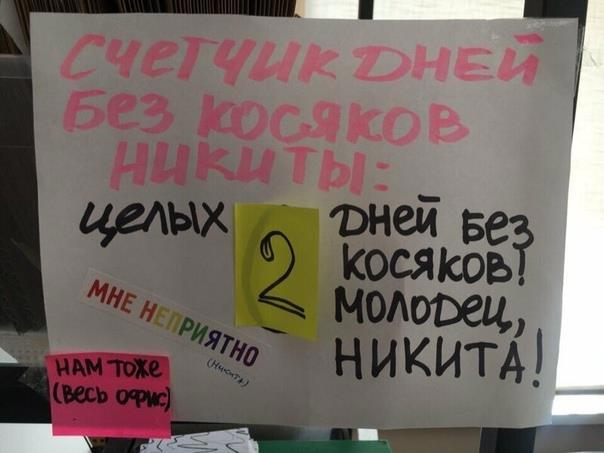 Счетчик дней
без косяков
Никиты:
целых 2 дней без
косяков!
Молодец,
Никита!
МНЕ НЕПРИЯТНО
(Никита)
Нам тоже
(весь офис)